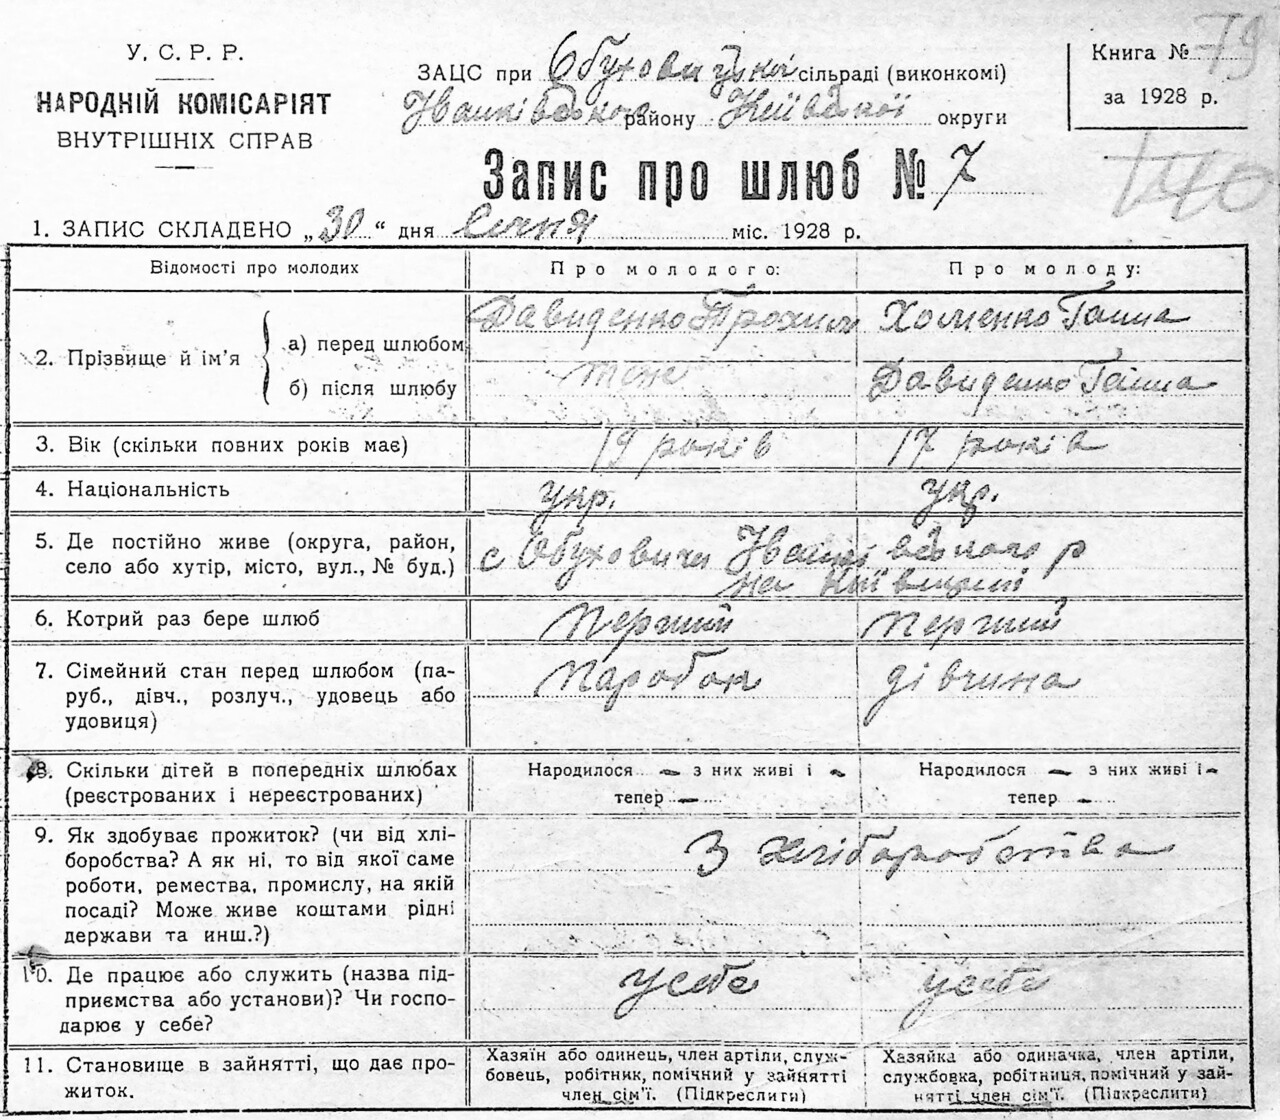 У. С. Р. Р.
НАРОДНІЙ КОМІСАРІЯТ
ВНУТРІШНІХ СПРАВ
ЗАЦС при Обуховицькій сільраді (виконкомі)
Іванківського району Київської округи
Книга № 79
за 1928 р.
140
Запис про шлюб № 7
1. ЗАПИС СКЛАДЕНО „30“ дня Січня міс. 1928 р.
Відомості про молодих
Про молодого:
Про молоду:
2. Прізвище й ім’я
а) перед шлюбом
Давиденко Трохим
Хоменко Ганна
б) після шлюбу
тож
Давиденко Ганна
3. Вік (скільки повних років має)
19 років
17 років
4. Національність
укр.
укр.
5. Де постійно живе (округа, район,
село або хутір, місто, вул., № буд.)
с Обуховичи Іванківського р
на Київщині
6. Котрий раз бере шлюб
перший
перший
7. Сімейний стан перед шлюбом (па-
руб., дівч., розлуч., удовець або
удовиця)
паробок
дівчина
8. Скільки дітей в попередніх шлюбах
(реєстрованих і нереєстрованих)
Народилося — з них живі і —
тепер —
Народилося — з них живі і —
тепер —
9. Як здобуває прожиток? (чи від хлі-
боробства? А як ні, то від якої саме
роботи, ремества, промислу, на якій
посаді? Може живе коштами рідні
держави та инш.?)
З хліборобства
10. Де працює або служить (назва під-
приємства або установи)? Чи госпо-
дарює у себе?
у себе
у себе
11. Становище в зайнятті, що дає про-
житок.
Хазяїн або одинець, член артіли, служ-
бовець, робітник, помічний у зайнятті
член сім’ї. (Підкреслити)
Хазяйка або одиначка, член артіли,
службовка, робітниця, помічний у зай-
нятті член сім’ї. (Підкреслити)